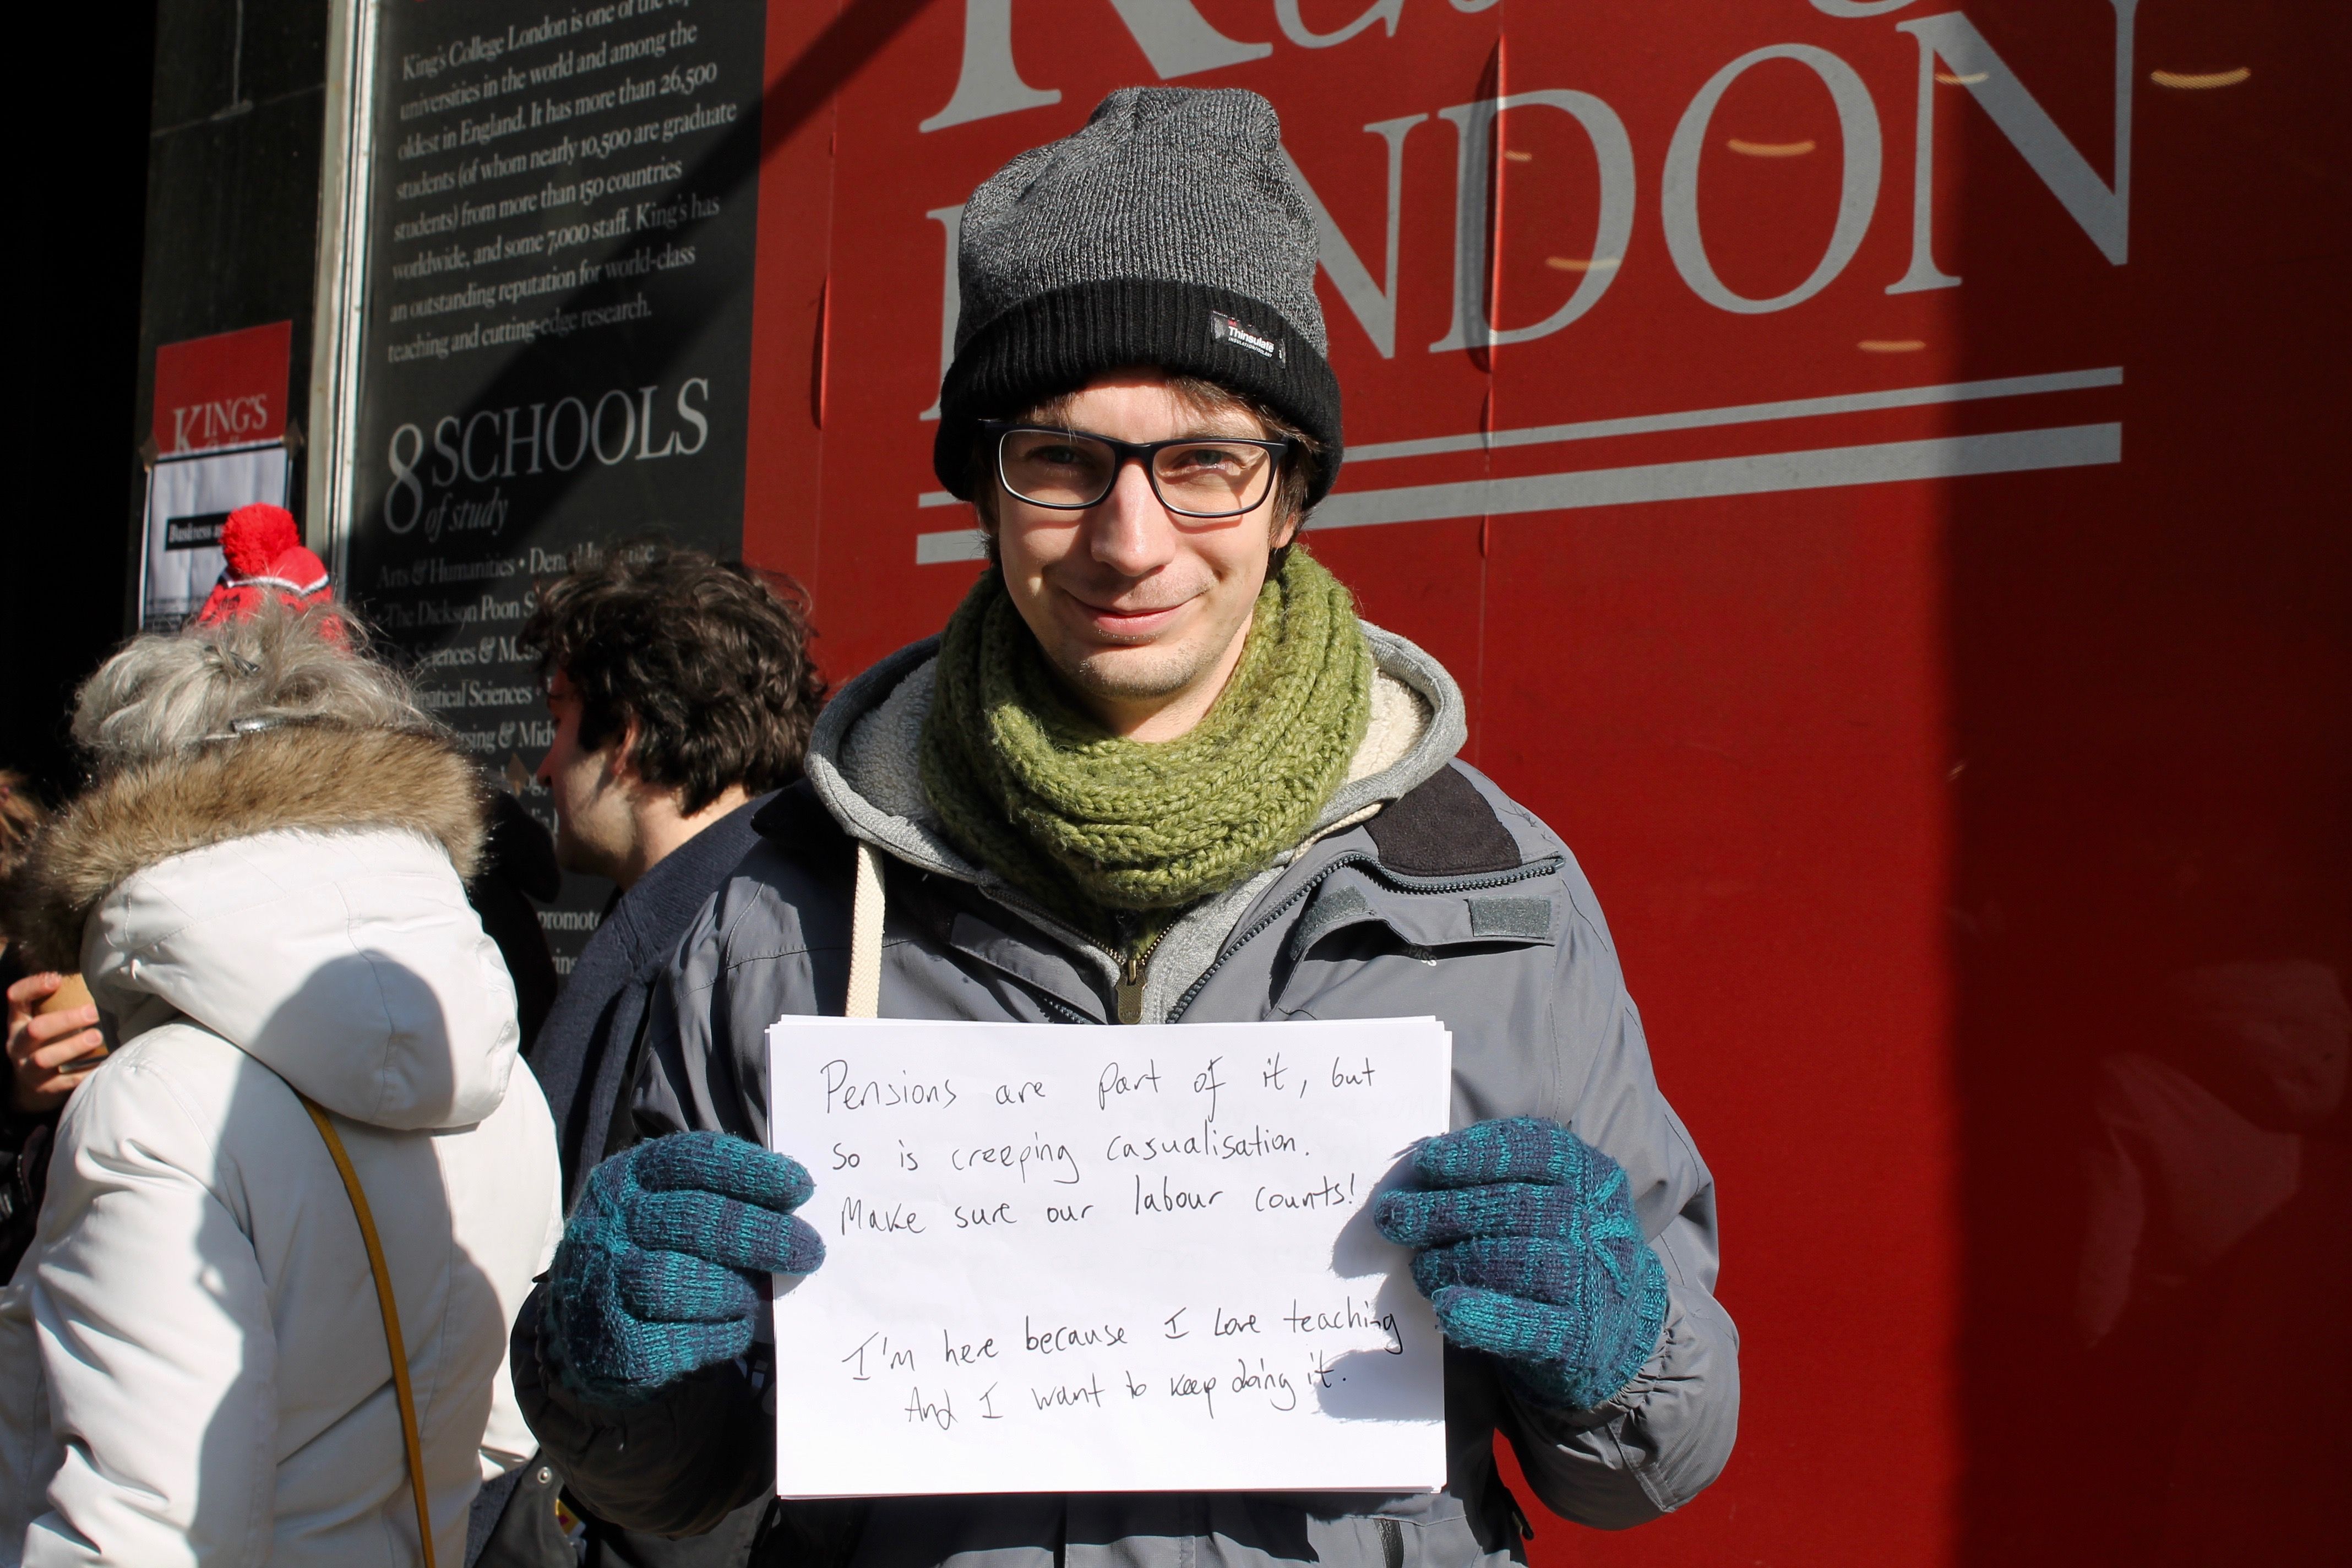 King's College London is one of the top
universities in the world and among the
oldest in England. It has more than 26,500
students (of whom nearly 10,500 are graduate
students) from more than 150 countries
worldwide, and some 7,000 staff. King's has
an outstanding reputation for world-class
teaching and cutting-edge research.
8 SCHOOLS
of study
Arts & Humanities •
The Dickson Poon
Sciences &
Sciences •
&
promote
KING'S
Business
LONDON
Thinsulate
INSULATION
Pensions are part of it, but
so is creeping casualisation.
Make sure our labour counts!
I'm here because I love teaching
And I want to keep doing it.